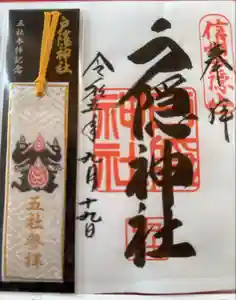 奉拝
戸隠神社
令和五年九月十九日
戸隠神社
五社参拝記念
五社参拝